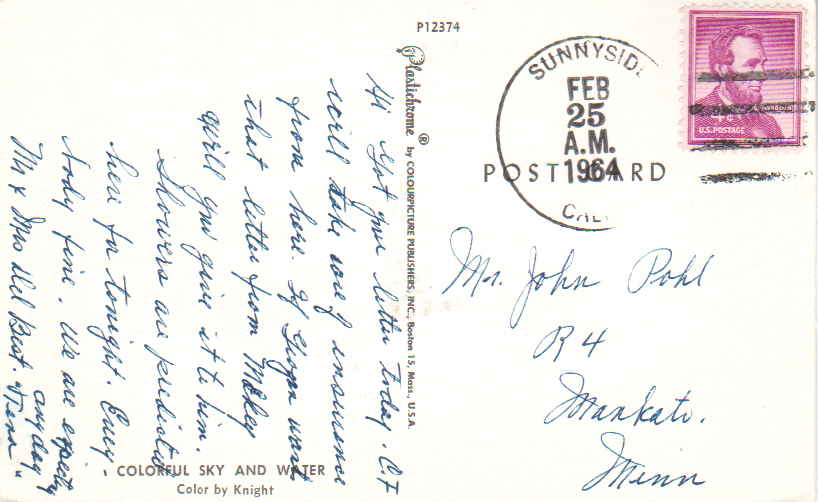 P12374
Plastichrome ® by COLOURPICTURE PUBLISHERS, INC., Boston 15, Mass., U.S.A.
Hi Got your letter today. C.F
will take care of insurance
from here. If wants
that letter from
will you give it to him.
Showers are predicted
here for tonight. Every
body fine. We are expecting
Mr & Mrs Del Best. any day
COLORFUL SKY AND WATER
Color by Knight
SUNNYSIDE
FEB
25
A.M.
1964
CALIF
4¢
U.S. POSTAGE
POST CARD
Mr. John Pohl
R 4
Mankato.
Minn